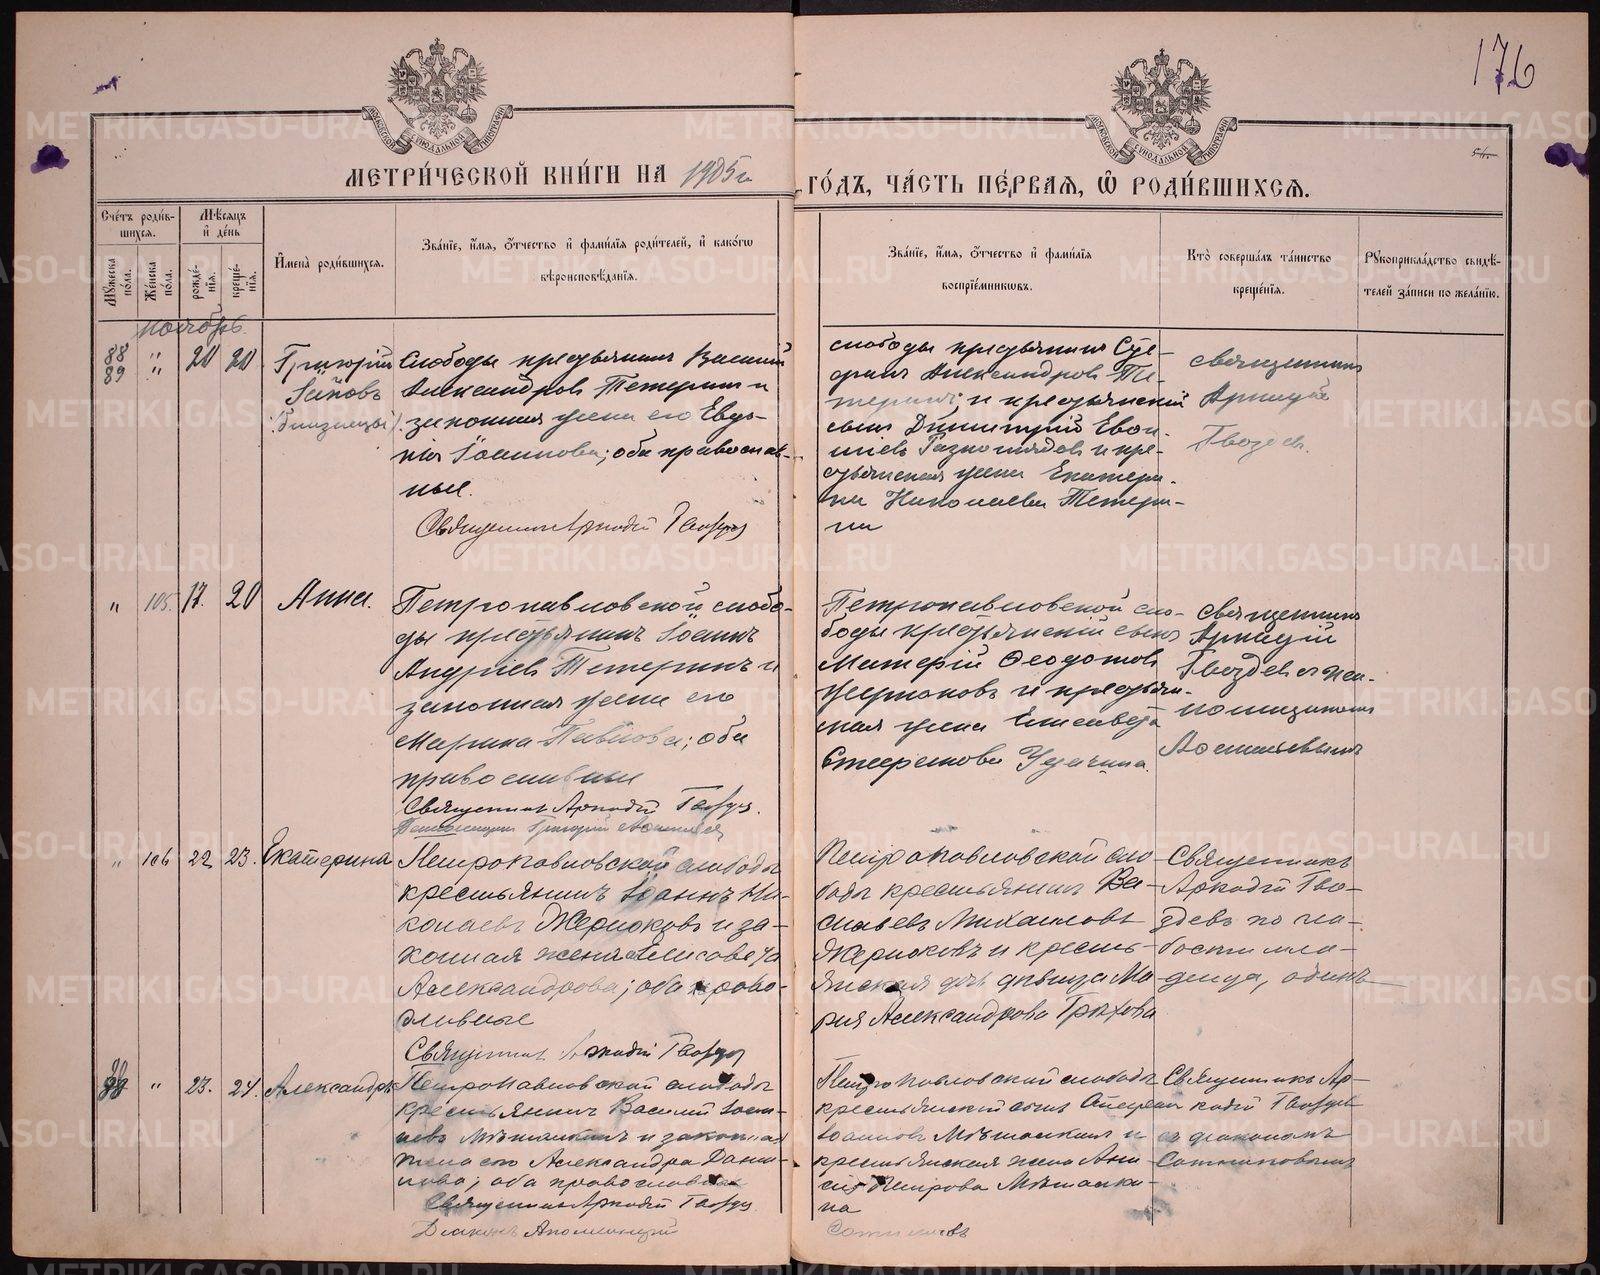 176
МЕТРИ́ЧЕСКОЙ КНИ́ГИ НА 1905 г.
ГО́ДЪ, ЧА́СТЬ ПЕ́РВАЯ, Ѿ РОДИ́ВШИХСЯ.
Сче́тъ роди́в-
шихся.
Му́жеска по́ла.
Же́нска по́ла.
Мѣ́сяцъ и де́нь
рожде́-
нїя.
креще́-
нїя.
Имена̀ роди́вшихся.
Зва́нїе, и́мя, о́тчество и фами́лїя роди́телей, и како́гѡ
вѣроисповѣ́данїя.
Зва́нїе, и́мя, о́тчество и фами́лїя
воспрїе́мникѡвъ.
Кто̀ соверша́лъ та́инство
креще́нїя.
Рукоприкла́дство свидѣ́-
телей за́писи по жела́нїю.
ноябрь
88 "
89 "
20 20
Григорій
Іаковъ
(близнецы)
Слободы крестьянинъ Василій
Александровъ Тетеринъ и
законная жена его Евдо-
кія Іоаннова; оба православ-
ные.
Священникъ Аркадій Гвоздев
слободы крестьянинъ
Александровъ Те-
теринъ; и крестьянскій
сынъ Димитрій
и кре-
стьянская жена Екатери-
на Николаева Тетери-
на
священникъ
Аркадій
Гвоздевъ.
" 105. 17. 20
Анна.
Петропавловской слобо-
ды крестьянинъ Іоаннъ
Андріевъ Тетеринъ и
законная жена его
Марина Павлова; оба
православные
Священникъ Аркадій Гвоздев.
Петропавловской сло-
боды крестьянскій сынъ
Матфій Феодотовъ
и крестьян-
ская жена Елисавета
священникъ
Аркадій
Гвоздевъ с пса-
ломщикомъ
" 106 22 23.
Екатерина
Петропавловской слободы
крестьянинъ Іоаннъ Ни-
колаевъ Жернокъ и за-
конная жена Елисавета
Александрова; оба право-
славные
Священникъ Аркадій Гвоздев
Петропавловской сло
боды крестьянинъ Ва-
сильевъ Михаиловъ
и кресть-
янская дочь дѣвица Ма-
рія Александрова Грехова
Священникъ
Аркадій Гво-
здевъ по сла-
бости мла-
денца, одинъ
" 23. 24.
Александръ
Петропавловской слободы
крестьянинъ Василій Іоан-
новъ Мѣшалкинъ и законная
жена его Александра Дани-
лова; оба православные
Священникъ Аркадій Гвоздев
Петропавловской слободы
крестьянскій сынъ
Іоанновъ Мѣшалкинъ и
крестьянская жена Ани
сія Петрова Мѣшалки-
на
Священникъ Ар-
кадій Гвоздевъ
съ діакономъ
Сотниковымъ
Діаконъ Аполлинарій
Сотниковъ
METRIKI.GASO-URAL.RU